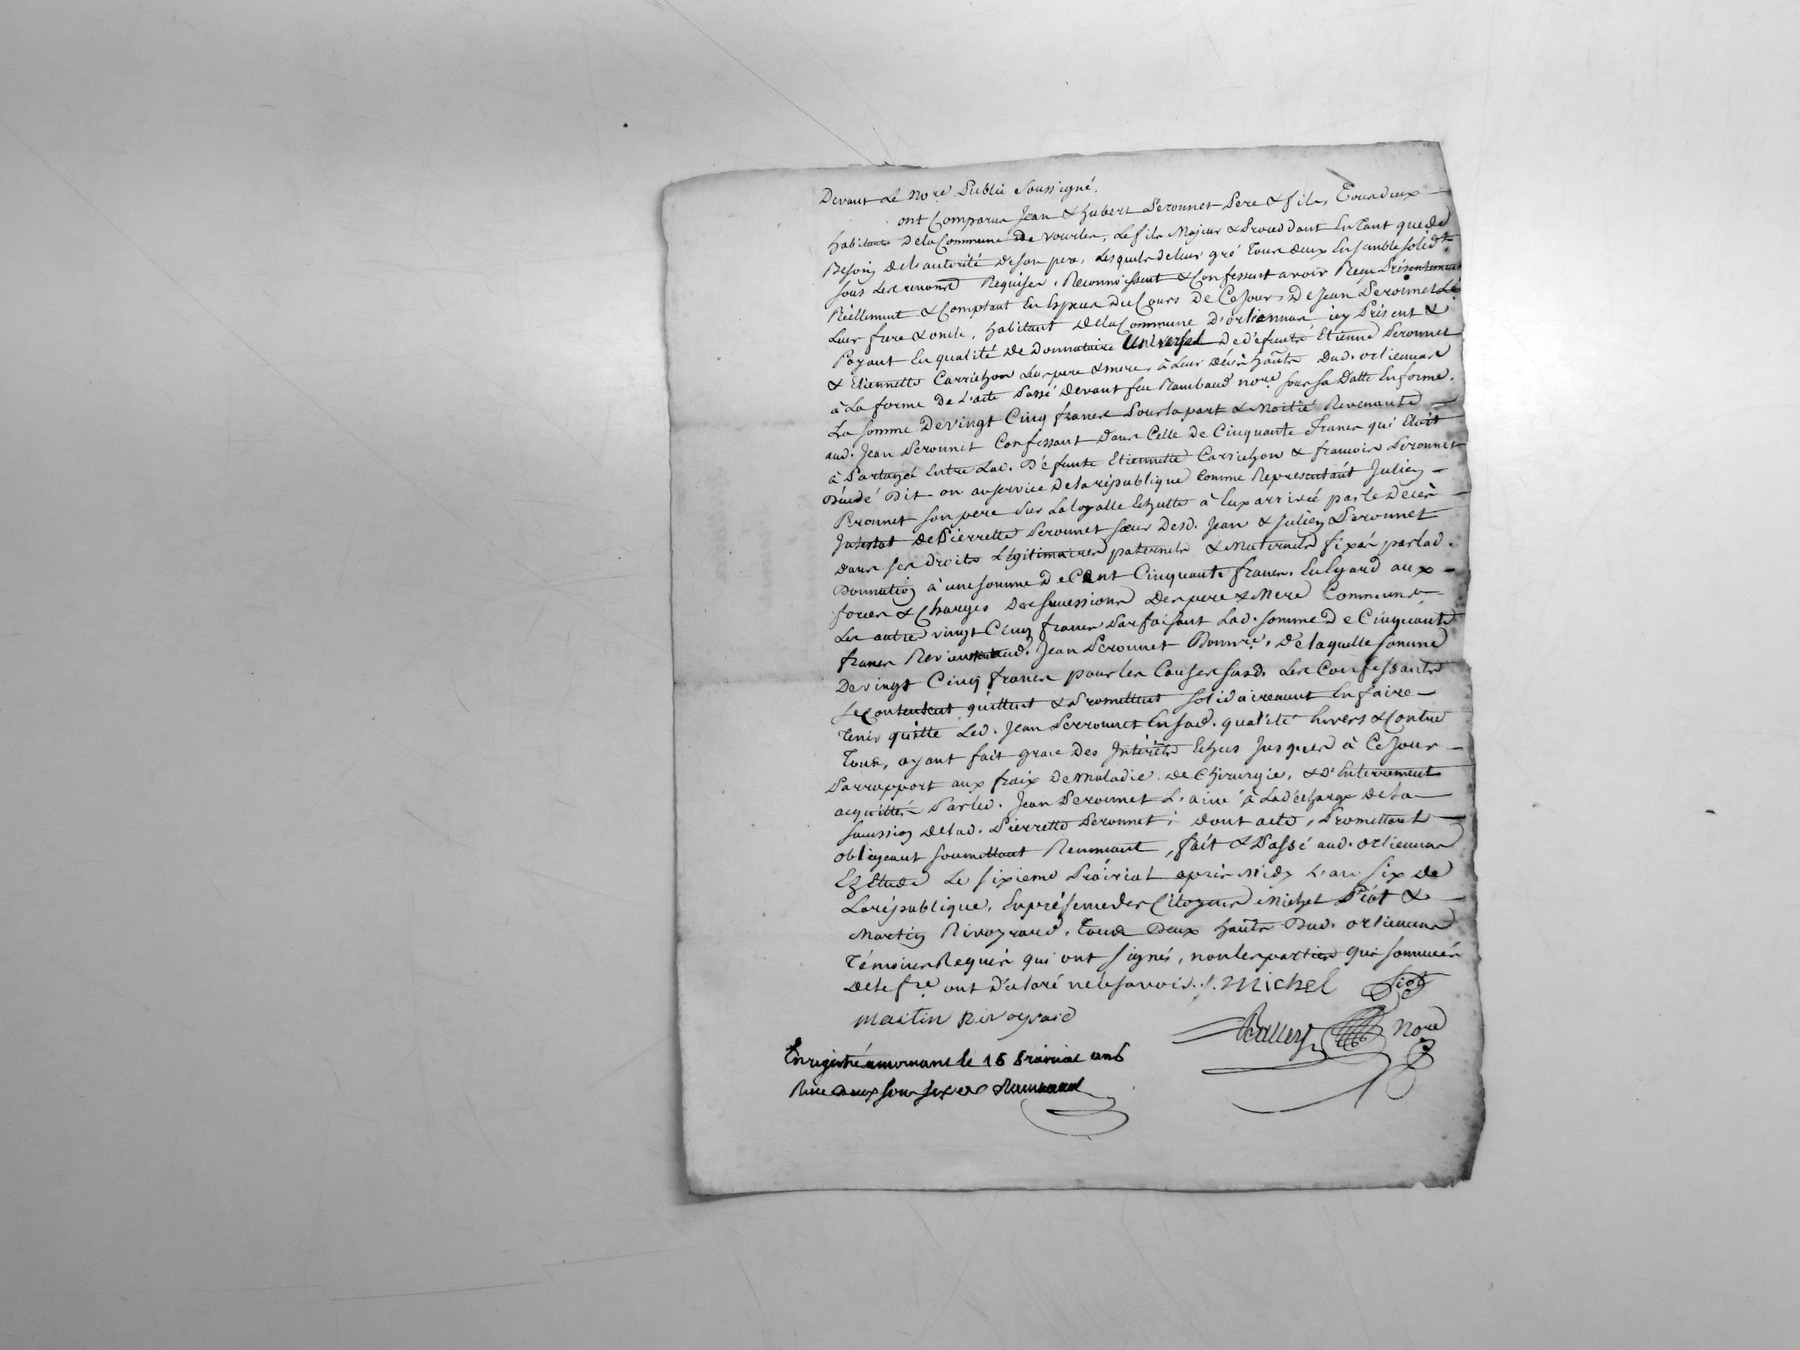 Devant Le Nore Public Soussigné.
ont Comparus Jean & hubert Peronnet Pere & fils, Tous deux
habitants dela Commune De Vourles, Le fils Majeur & Procedant En Tant que de
Besoin De Lautorité De son pere, Lesquels de leur gré Tous deux Ensemble solidt
sous Les renond Requises, Reconnoissent & Confessent avoir Reçu Présentement
Réellement & Comptant En Espece Du Cours De Ce Jour, De Jean Peronnet Lé
Leur frere & oncle, habitant Dela Commune D'orliennas icy Présent &
Payant En qualité De Donnataire Universel De défunts Etienne Peronnet
& Etiennette Carrichon Ses pere & mere, à Leur décès habts Dud. orliennas
à La forme De L'acte Passé Devant feu Rambaud nore sous sa Datte En forme.
La somme De vingt Cinq francs Pour la part & Moitié Revenante
aud. Jean Peronnet Confessant Dans Celle de Cinquante francs qui Etoit
à Partager Entre Lad. Défunte Etiennette Carrichon & francois Peronnet
Décédé Dit on au service Dela république Comme Representant Julien
Peronnet son pere Sur La Loyalle Echutte à Eux arrivée par le Décès
Intestat De Pierrette Peronnet sœur Desd. Jean & Julien Peronnet
Dans ses droits Légitimaires paternels & Maternels fixés par lad.
Donnation à une somme De Cent Cinquante francs. En Egard aux
forces & Charges Des successions Des pere & Mere Communs
Les autres vingt Cinq francs Parfaisant Lad. somme De Cinquante
francs Revienent aud. Jean Peronnet Donnre. De laquelle somme
De vingt Cinq francs pour les Causes susd. Les Confessants
se Contentent, quittent & Promettent solidairement En faire
Tenir quitte Led. Jean Perronnet En sad. qualité Envers & Contre
Tous, ayant fait grace Des Intérêts Echus Jusques à Ce Jour
Par rapport aux fraix De Maladie, de Chirurgie, & D'Enterrement
acquittés Par led. Jean Peronnet L'ainé à La décharge De la
succession De lad. Pierrette Peronnet; Dont acte, Promettant
obligeant soumettant Renonceant, fait & Passé aud. orliennas
Ez Etude Le sixieme Prairial après Midy L'an Six De
La république, En présence des Citoyens Michel Piot &
Martin Rivoyrard, Tous Deux habts Dud. orliennas
Témoins Requis qui ont signés, non les parties qui sommées
De le fre ont Déclaré ne le savoir. Michel Piot
Martin Rivoyrard
Nore
Enregistré a mornant le 16 Prairial an 6
Reçu deux sous six